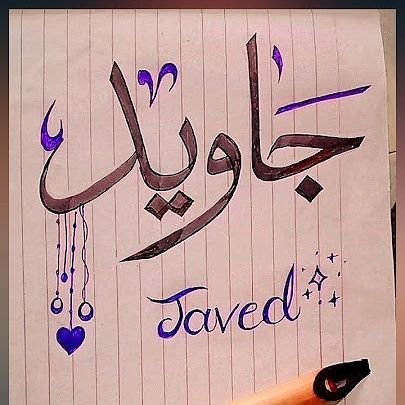 جاوید
Javed